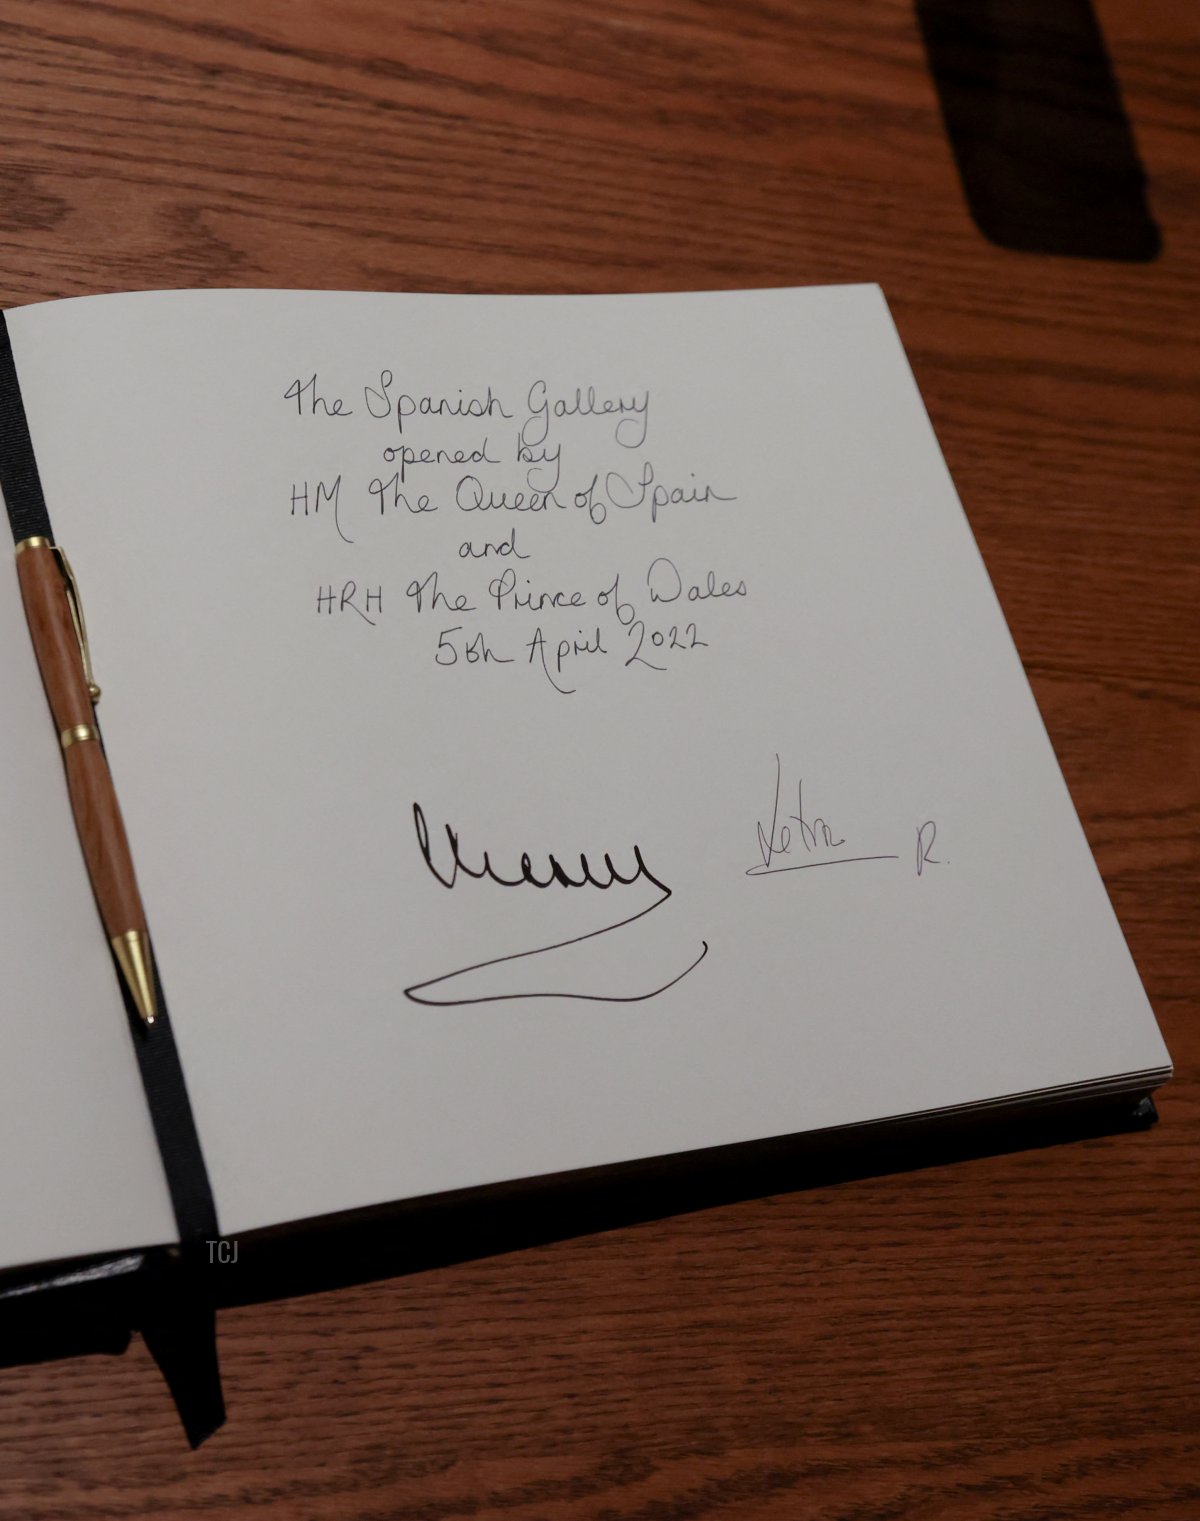 The Spanish Gallery
opened by
HM The Queen of Spain
and
HRH The Prince of Wales
5th April 2022
R.
TCJ